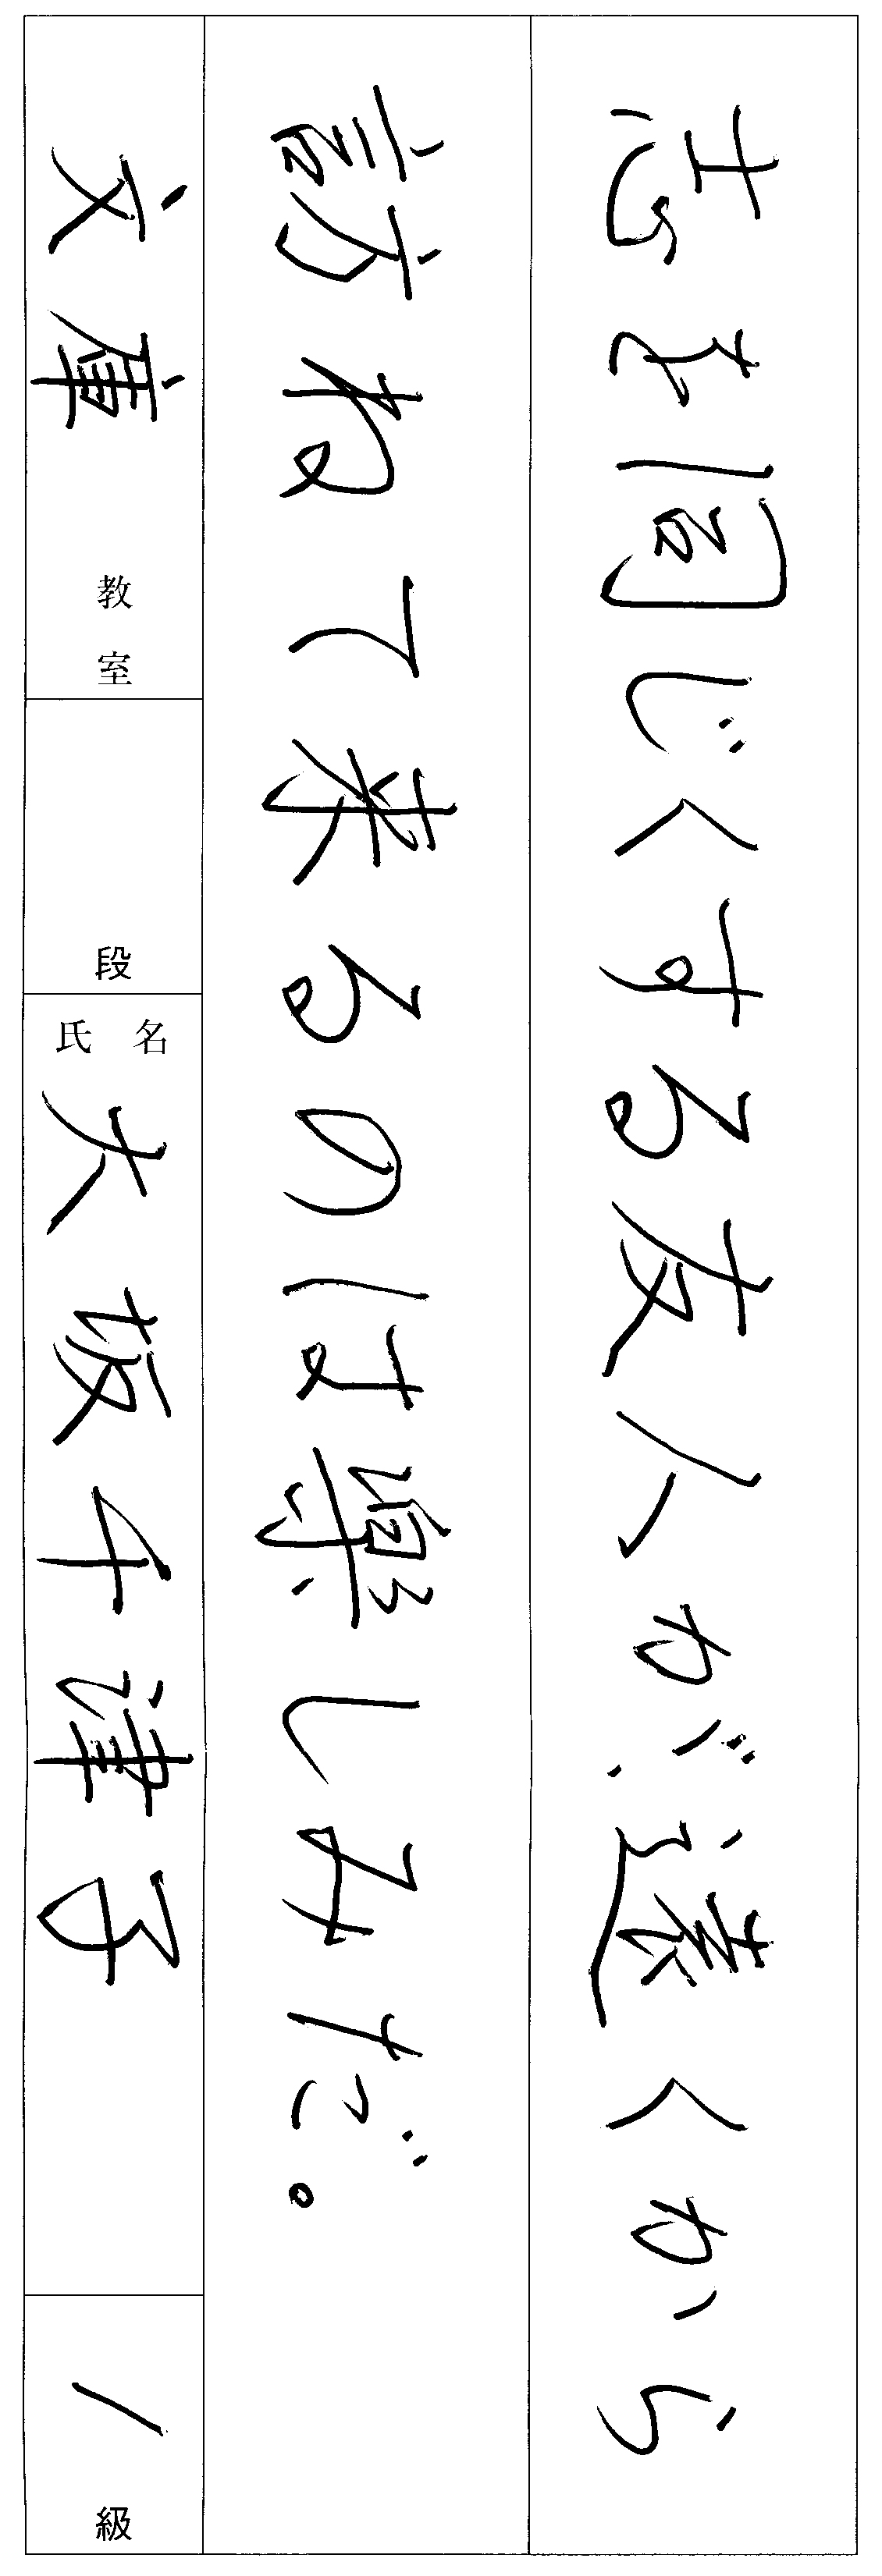 志を同じくする友人が遠くから
訪ねて来るのは楽しみだ。
文庫教室
段
氏名 大坂千津子
1級